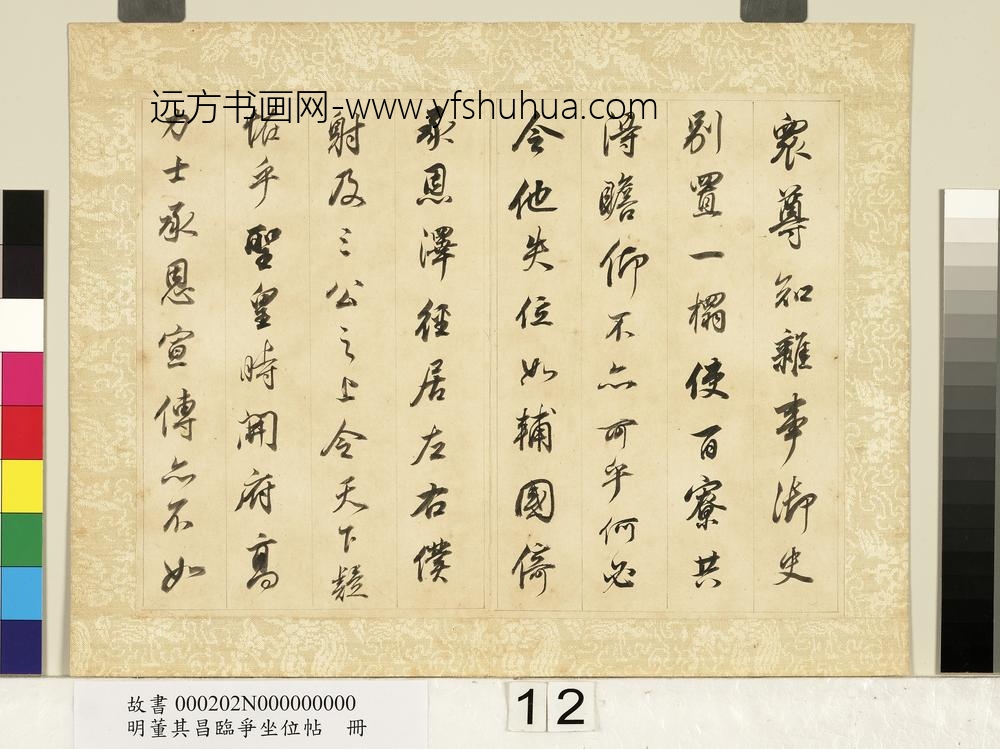 远方书画网-www.yfshuhua.com
衆尊知雜事御史
别置一榻使百寮共
得瞻仰不亦可乎何必
令他失位如輔國倚
承恩澤徑居左右僕
射及三公之上令天下疑
怪乎聖皇時開府高
力士承恩宣傳亦不如
故書 000202N000000000
明董其昌臨爭坐位帖 冊
12